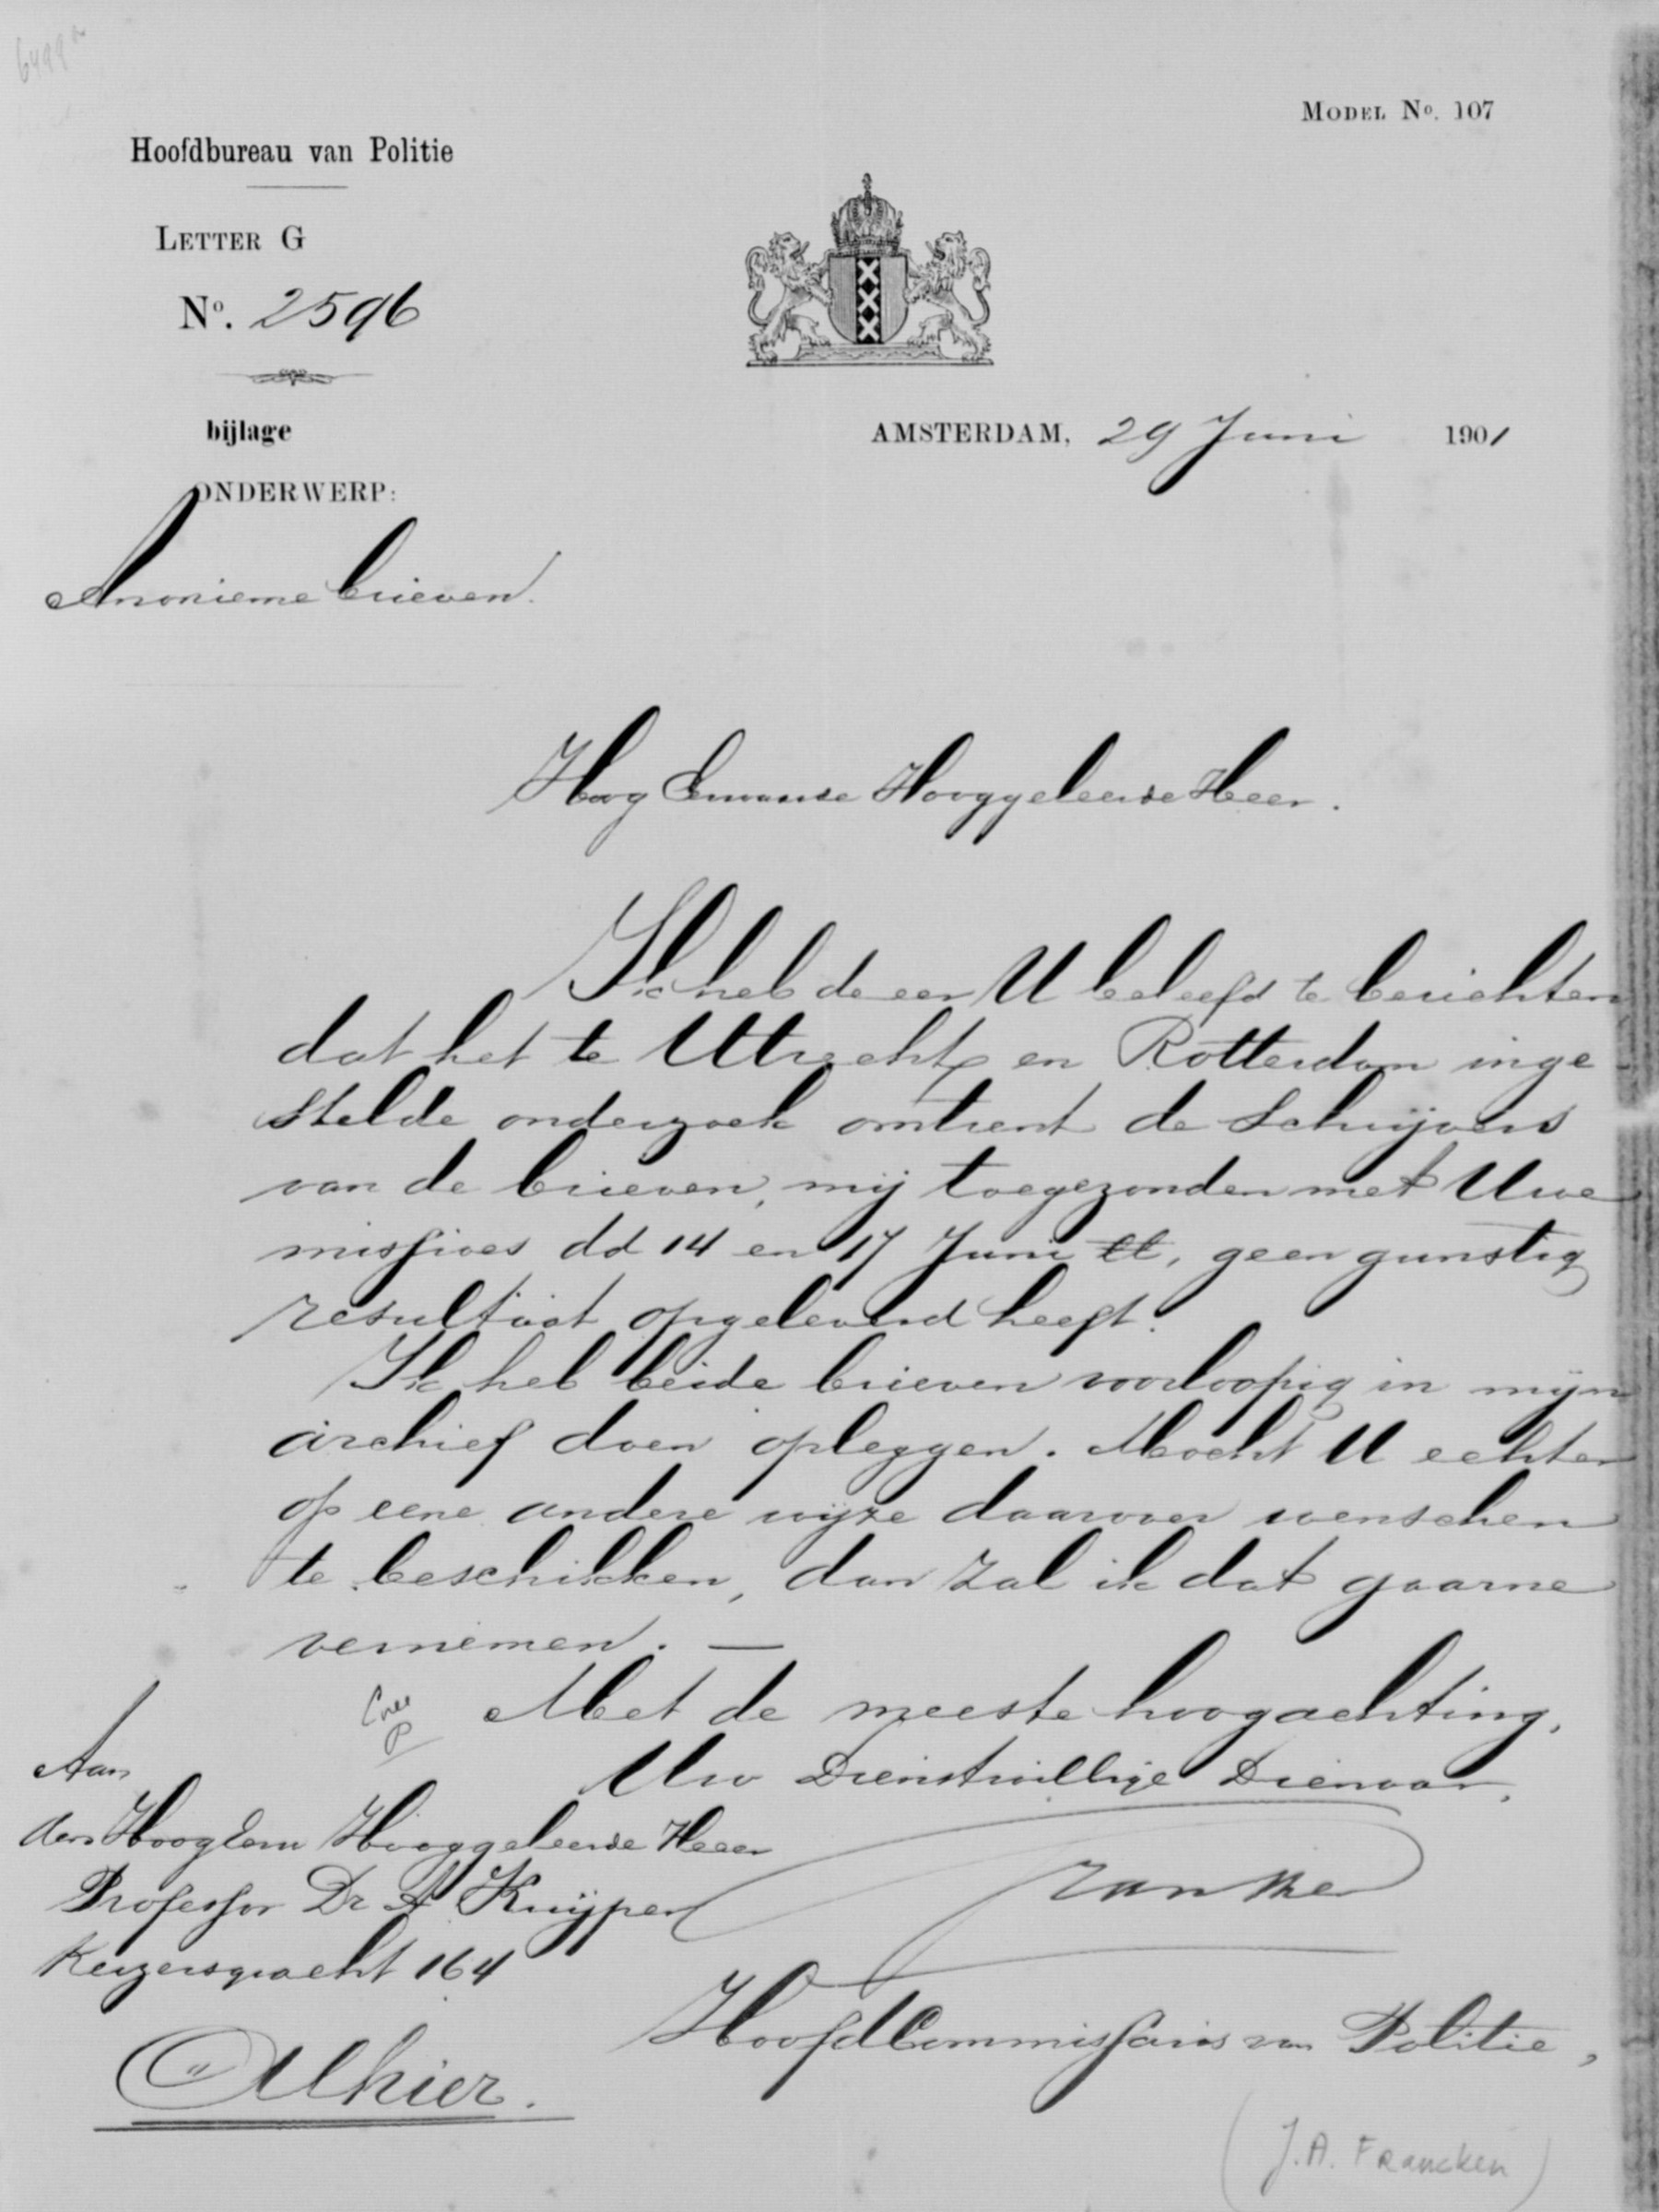 6499a
MODEL No. 107
Hoofdbureau van Politie
LETTER G
No. 2596
bijlage
AMSTERDAM, 29 Juni 1901
ONDERWERP:
Anonieme brieven.
Hoog Eerwaarde Hooggeleerde Heer.
Ik heb de eer U beleefd te berichten
dat het te Utrecht en Rotterdam inge
stelde onderzoek omtrent de Schrijvers
van de brieven, mij toegezonden met Uwe
missives dd 14 en 17 Juni ll, geen gunstig
resultaat opgeleverd heeft.
Ik heb beide brieven voorloopig in mijn
archief doen opleggen. Mocht U echter
op eene andere wijze daarover wenschen
te beschikken, dan zal ik dat gaarne
vernemen. —
Met de meeste hoogachting,
Uw Dienstwillige Dienaar,
Francken
HoofdCommissaris van Politie,
(J.A. Francken)
Aan
den HoogEerw Hooggeleerde Heer
Professor Dr A Kuijper
Keizersgracht 164
Alhier.